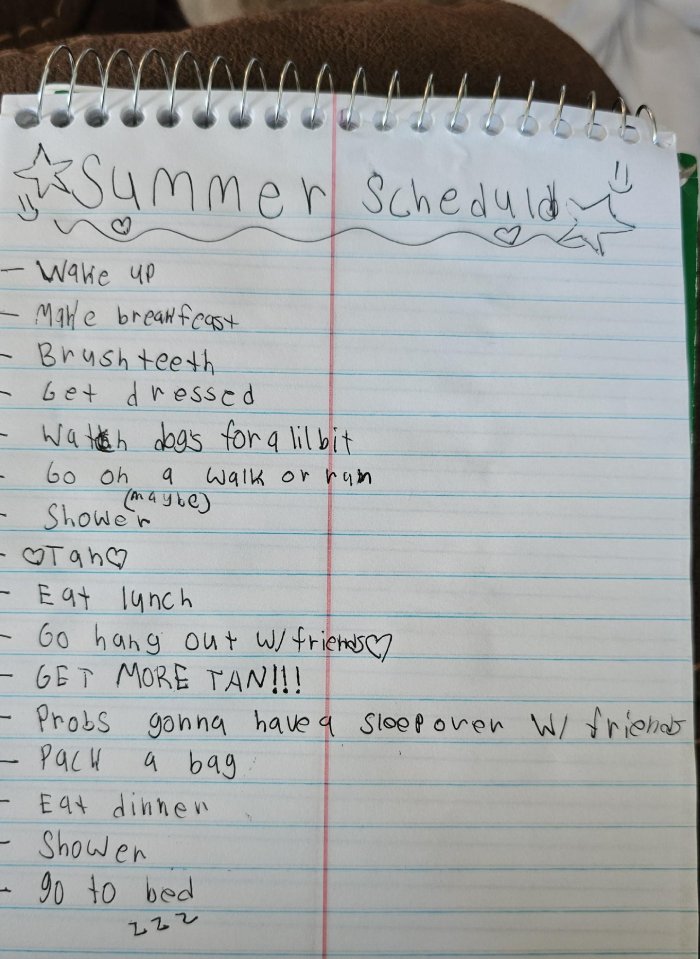 Summer Schedule
- Wake up
- Make breakfeast
- Brush teeth
- Get dressed
- Watch dogs for a lil bit
- Go on a walk or run
(maybe)
- Shower
- ♡Tan♡
- Eat lunch
- Go hang out w/ friends♡
- GET MORE TAN!!!
- Probs gonna have a sleepover w/ friends
- Pack a bag
- Eat dinner
- Shower
- go to bed
z z z